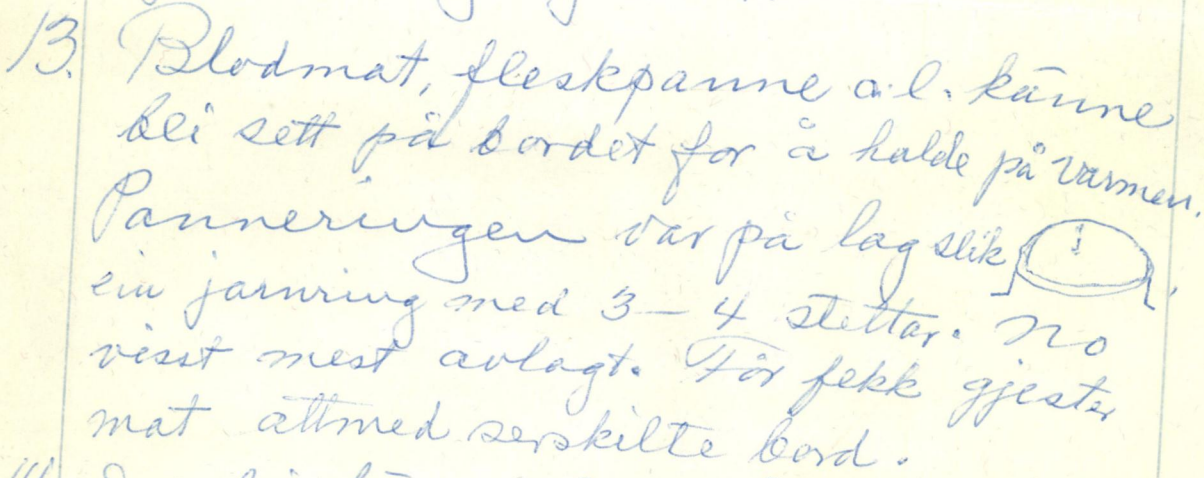 13. Blodmat, fleskpanne o.l. kunne
bli sett på bordet for å halde på varmen.
Panneringen var på lag slik
ein jarnring med 3-4 stettar. No
visst mest avlagt. Før fekk gjester
mat attmed serskilte bord.